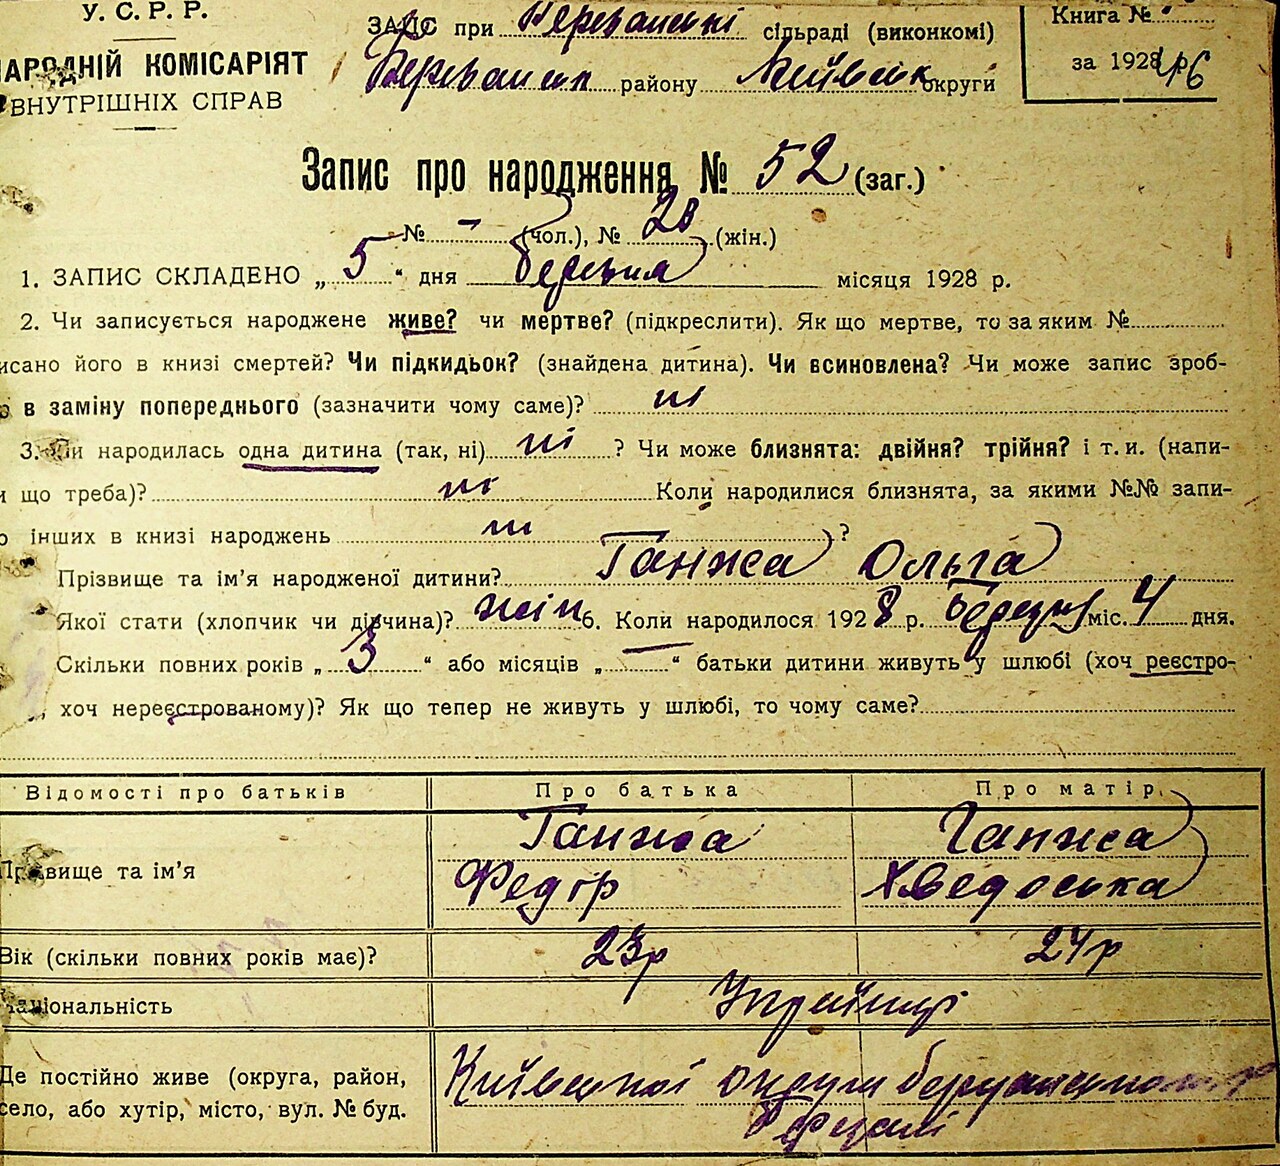 У. С. Р. Р.
НАРОДНІЙ КОМІСАРІЯТ
ВНУТРІШНІХ СПРАВ
ЗАПС при сільраді (виконкомі)
району Київськ округи
Книга №
за 1928 р.
Запис про народження № 52 (заг.)
№ - (чол.), № 28 (жін.)
1. ЗАПИС СКЛАДЕНО „ 5 “ дня березня місяця 1928 р.
2. Чи записується народжене живе? чи мертве? (підкреслити). Як що мертве, то за яким №
исано його в книзі смертей? Чи підкидьок? (знайдена дитина). Чи всиновлена? Чи може запис зроб-
в заміну попереднього (зазначити чому саме)? ні
3. Чи народилась одна дитина (так, ні) ні ? Чи може близнята: двійня? трійня? і т. и. (напи-
и що треба)? ні Коли народилися близнята, за якими №№ запи-
о інших в книзі народжень ні ?
Прізвище та ім'я народженої дитини? Ганжа Ольга
Якої стати (хлопчик чи дівчина)? жін 6. Коли народилося 1928 р. березня міс. 4 дня.
Скільки повних років „ 3 “ або місяців „ — “ батьки дитини живуть у шлюбі (хоч реєстро-
, хоч нереєстрованому)? Як що тепер не живуть у шлюбі, то чому саме?
Відомості про батьків Про батька Про матір
Прізвище та ім'я Ганжа Федір Ганжа Хведоська
Вік (скільки повних років має)? 23р 24р
Національність Українці
Де постійно живе (округа, район,
село, або хутір, місто, вул. № буд. Київської округи